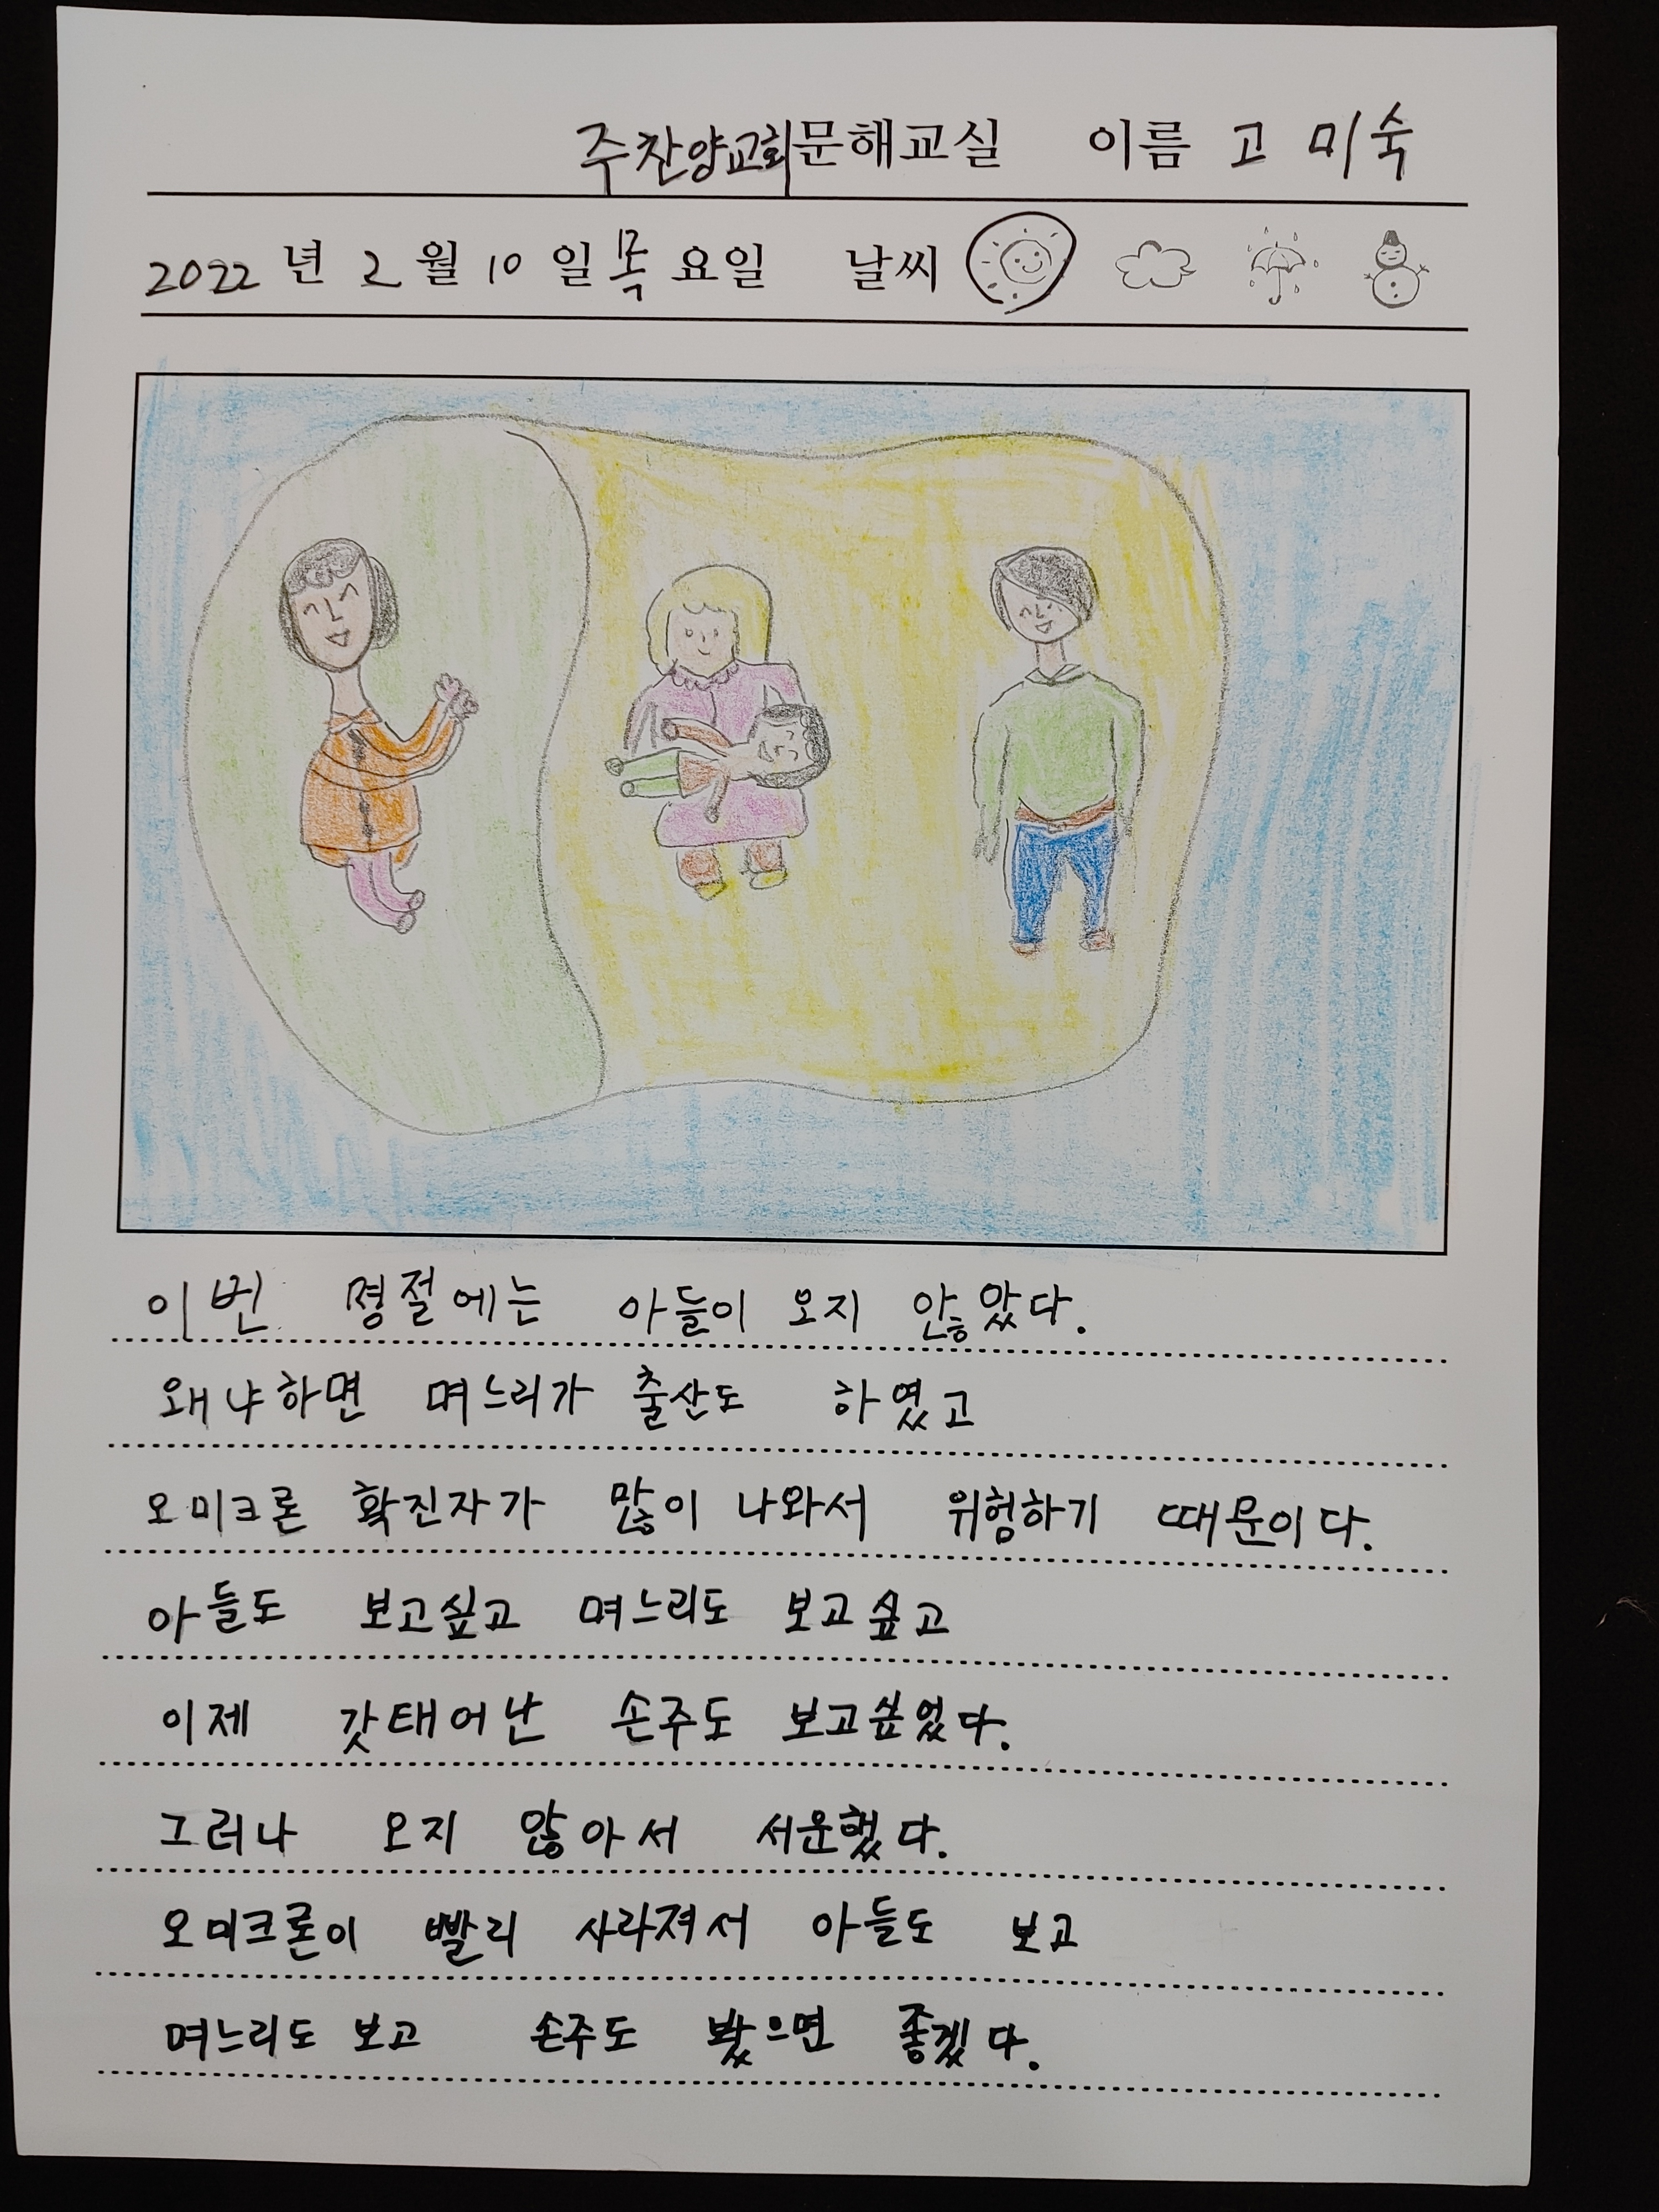 주찬양교회문해교실 이름 고미숙
2022년 2월 10일 목요일 날씨
이번 명절에는 아들이 오지 않았다.
왜냐하면 며느리가 출산도 하였고
오미크론 확진자가 많이 나와서 위험하기 때문이다.
아들도 보고싶고 며느리도 보고싶고
이제 갓태어난 손주도 보고싶었다.
그러나 오지 않아서 서운했다.
오미크론이 빨리 사라져서 아들도 보고
며느리도 보고 손주도 봤으면 좋겠다.